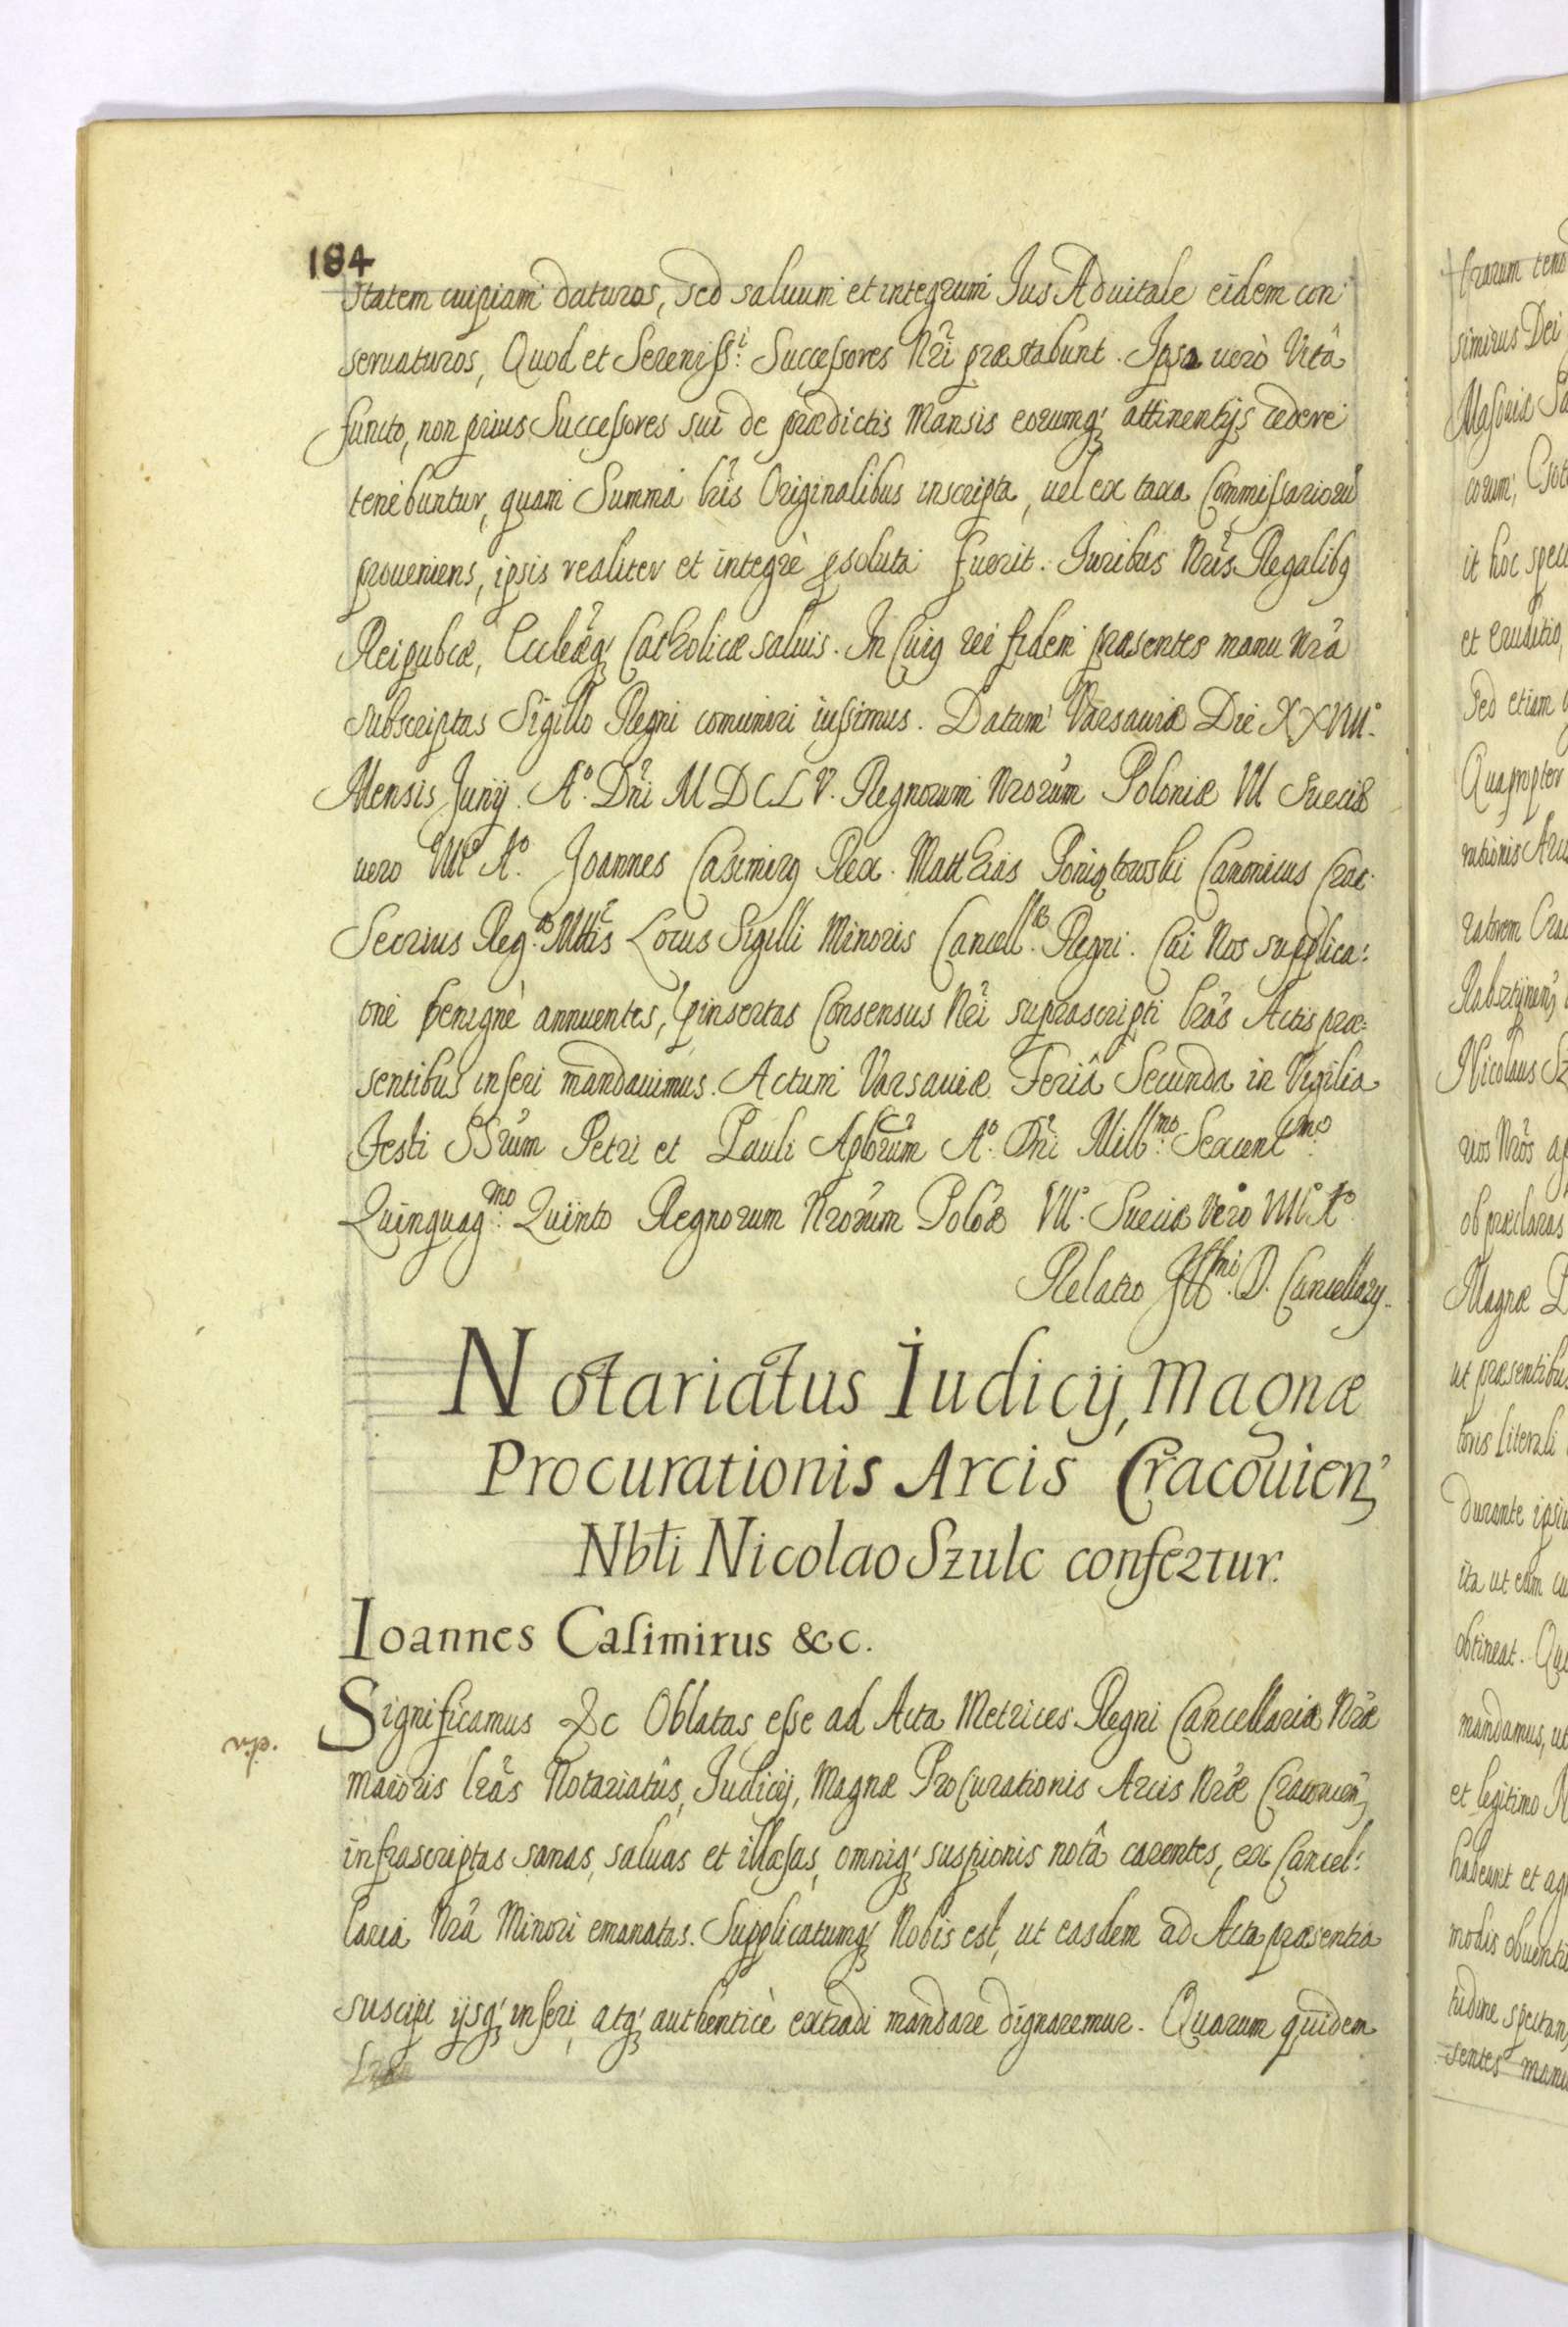 184
statem cuipiam daturos, sed saluum et integrum Jus Aduitale eidem con
seruaturos, Quod et Sereniss:i Successores Nri præstabunt. Ipso uerò Vitâ
functo, non prius Successores sui de prædictis Mansis eorumq; attinentijs cedere
tenebuntur, quam Summa lris Originalibus inscripta, uel ex taxa Commissariorũ
proueniens, ipsis realiter et integrè psoluta fuerit. Iuribus Nris Regalibq
Reipubcæ, Eccleæq; Catholicæ saluis. In Cuiq rei fidem præsentes manu Nrâ
subscriptas Sigillo Regni comuniri iussimus. Datum Varsauiæ Die XXVIII.
Mensis Junij. A.o Dni MDCLV. Regnorum Nrorum Poloniæ VII Sueciæ
uero VIII A.o Joannes Casimirq Rex. Matthias Poniatowski Canonicus Crac:
Secrius Reg:æ Mttis Locus Sigilli Minoris Cancell:æ Regni. Cui Nos supplica:
oni benignè annuentes, pinsertas Consensus Nri suprascripti lras Actis præ:
sentibus inseri mandauimus. Actum Varsauiæ Feriâ Secunda in Vigilia
Festi SSrum Petri et Pauli Aplorum A.o Dni Mill:mo Sexcent:mo
Quinquag:mo Quinto Regnorum Nrorum Polôæ VII. Sueciæ Vero VIII A.o
Relatio Ill:mi D. Cancellarij.
Notariatus Iudicij, Magnæ
Procurationis Arcis Cracouien
Nbli Nicolao Szulc confertur.
Ioannes Casimirus &c.
Significamus &c Oblatas esse ad Acta Metrices Regni Cancellariæ Nræ
maioris lras Notariatûs, Judicij, Magnæ ProCurationis Arcis Nræ Cracouien
infrascriptas sanas, saluas et illæsas, omniq; suspionis notâ carentes, ex Cancel:
laria Nrâ Minori emanatas. Supplicatumq; Nobis est, ut easdem ad Acta præsentia
suscipi ijsq; inseri, atq; authenticè extradi mandare dignaremur. Quarum quidem
lrarum teno
simirus Dei
Masouiæ
corum,
it hoc spec
et eruditio,
sed etiam
Quapropter
rationis Arc
ratorem Crac
Rabsztynen
Nicolaus Sz
rios Nros
ob præclaras
Magnæ P
ut præsentibus
toris literali
durante ipsiu
ita ut eam cu
obtineat. Qu
mandamus, ut
et legitimo N
habeant et ag
modis obuenti
tudine spectan
sentes manu